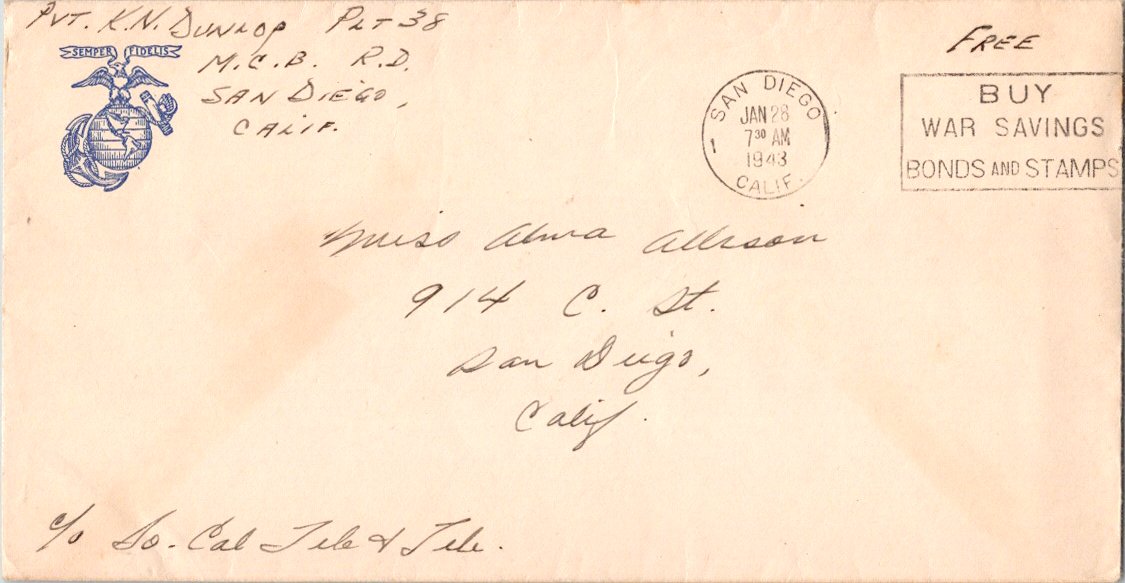 Pvt. K.N. Dunlop Plt 38
M.C.B. R.D.
San Diego,
Calif.
SEMPER FIDELIS
Free
SAN DIEGO
JAN 28
7 30 AM
1943
1
CALIF.
BUY
WAR SAVINGS
BONDS AND STAMPS
Miss Alma Allison
914 C. St.
San Diego,
Calif.
c/o So. Cal Tele & Tele.